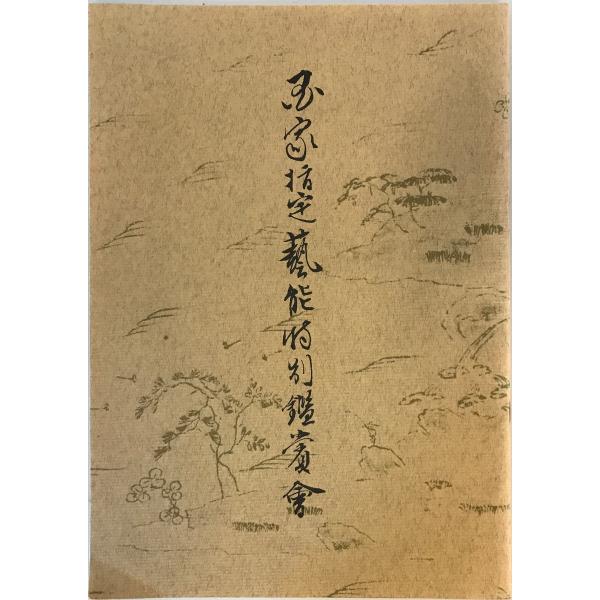 国家指定藝能特別鑑賞會